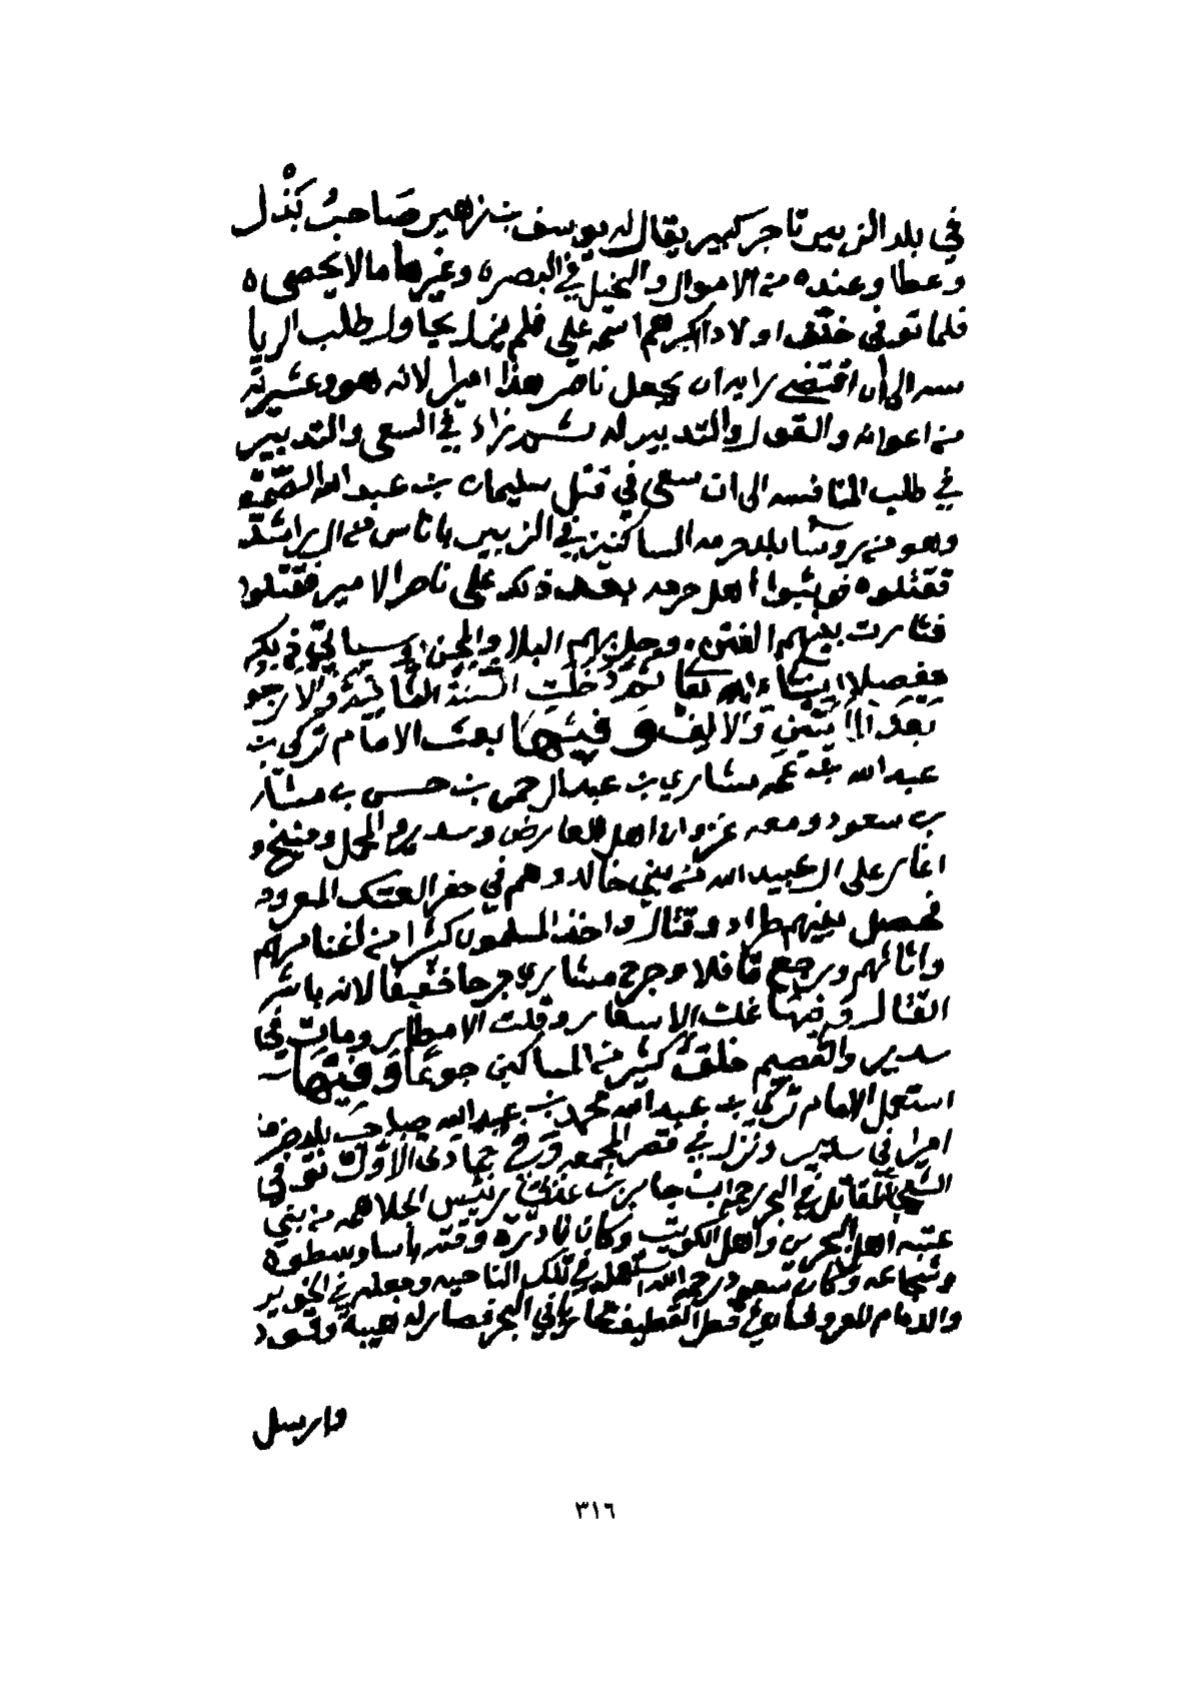 في بلد الزبير تاجر كبير يقال له يوسف بن زهير صَاحبُ بَذْل
وعطا وعنده من الاموال والنخيل في البصره وغيرها ما لا يحصى ه
فلما توفى خلّف اولادا اكبرهم اسمه علي فلم يزل يحاول طلب الريا
سه الى أن اقتضى رايه ان يجعل ناصر هذا اميرا لانه هو وعشيرته
من اعوانه والقول والتدبير له ثم زاد في السعي والتدبير
في طلب المنافسه الى ان سعى في قتل سليمان بن عبدالله الصميط
وهو من روسا بلد حرمه الساكنين في الزبير باناس من ال راشد
فقتلوه فوثبوا اهل حرمه بعد ذلك على ناصر الامير فقتلوه
فثارت بينهم الفتن وحل بهم البلا والمحن وسياتي ذكر
مفصلا إن شاء الله تعا ثم دَخَلَتِ السَّنَةُ الثَّانِيَةُ والارْبعو
بَعْدَ المِائتَيْنِ وَالالِفْ وَفِيْهَا بعث الامام تركي بن
عبدالله عمه مشاري بن عبدالرحمن بن حسن بن مشار
بن سعود ومعه غزوان اهل العارض وسدير والمحمل ومنيخ و
اغار على ال عبيدالله من بني خالد وهم في حفر العتك المعروف
فحصل بينهم طراد وقتال واخذ المسلمون كثيرا من اغنامهم
واثاثهم ورجع قافلا وجرح مشاري جرحا خفيفا لانه باشر
القتال وفيها غلت الاسعار وقلت الامطار ومات في
سدير والقصيم خلقٌ كثير من المساكين جوعًا وَفِيْهَا
استعمل الامام تركي بن عبدالله محمد بن عبدالله صاحب بلد ضرما
اميرا في سدير ونزل في قصر المجمعه وفي جمادى الاوّل توفى
الشجيع المقاتل في البحر رحمة ابن جابر بن عذبي رئيس الجلاهمه من بني
عتبه اهل البحرين واهل الكويت وكان نادرة وقته باسا وسطوه
وشجاعه وكان سعود رحمه الله استعمله في تلك الناحيه وجعله في الخوير
والدمام المعروف قصر القطيف في البحر فصار له هيبة وقود
وارسل
٣١٦